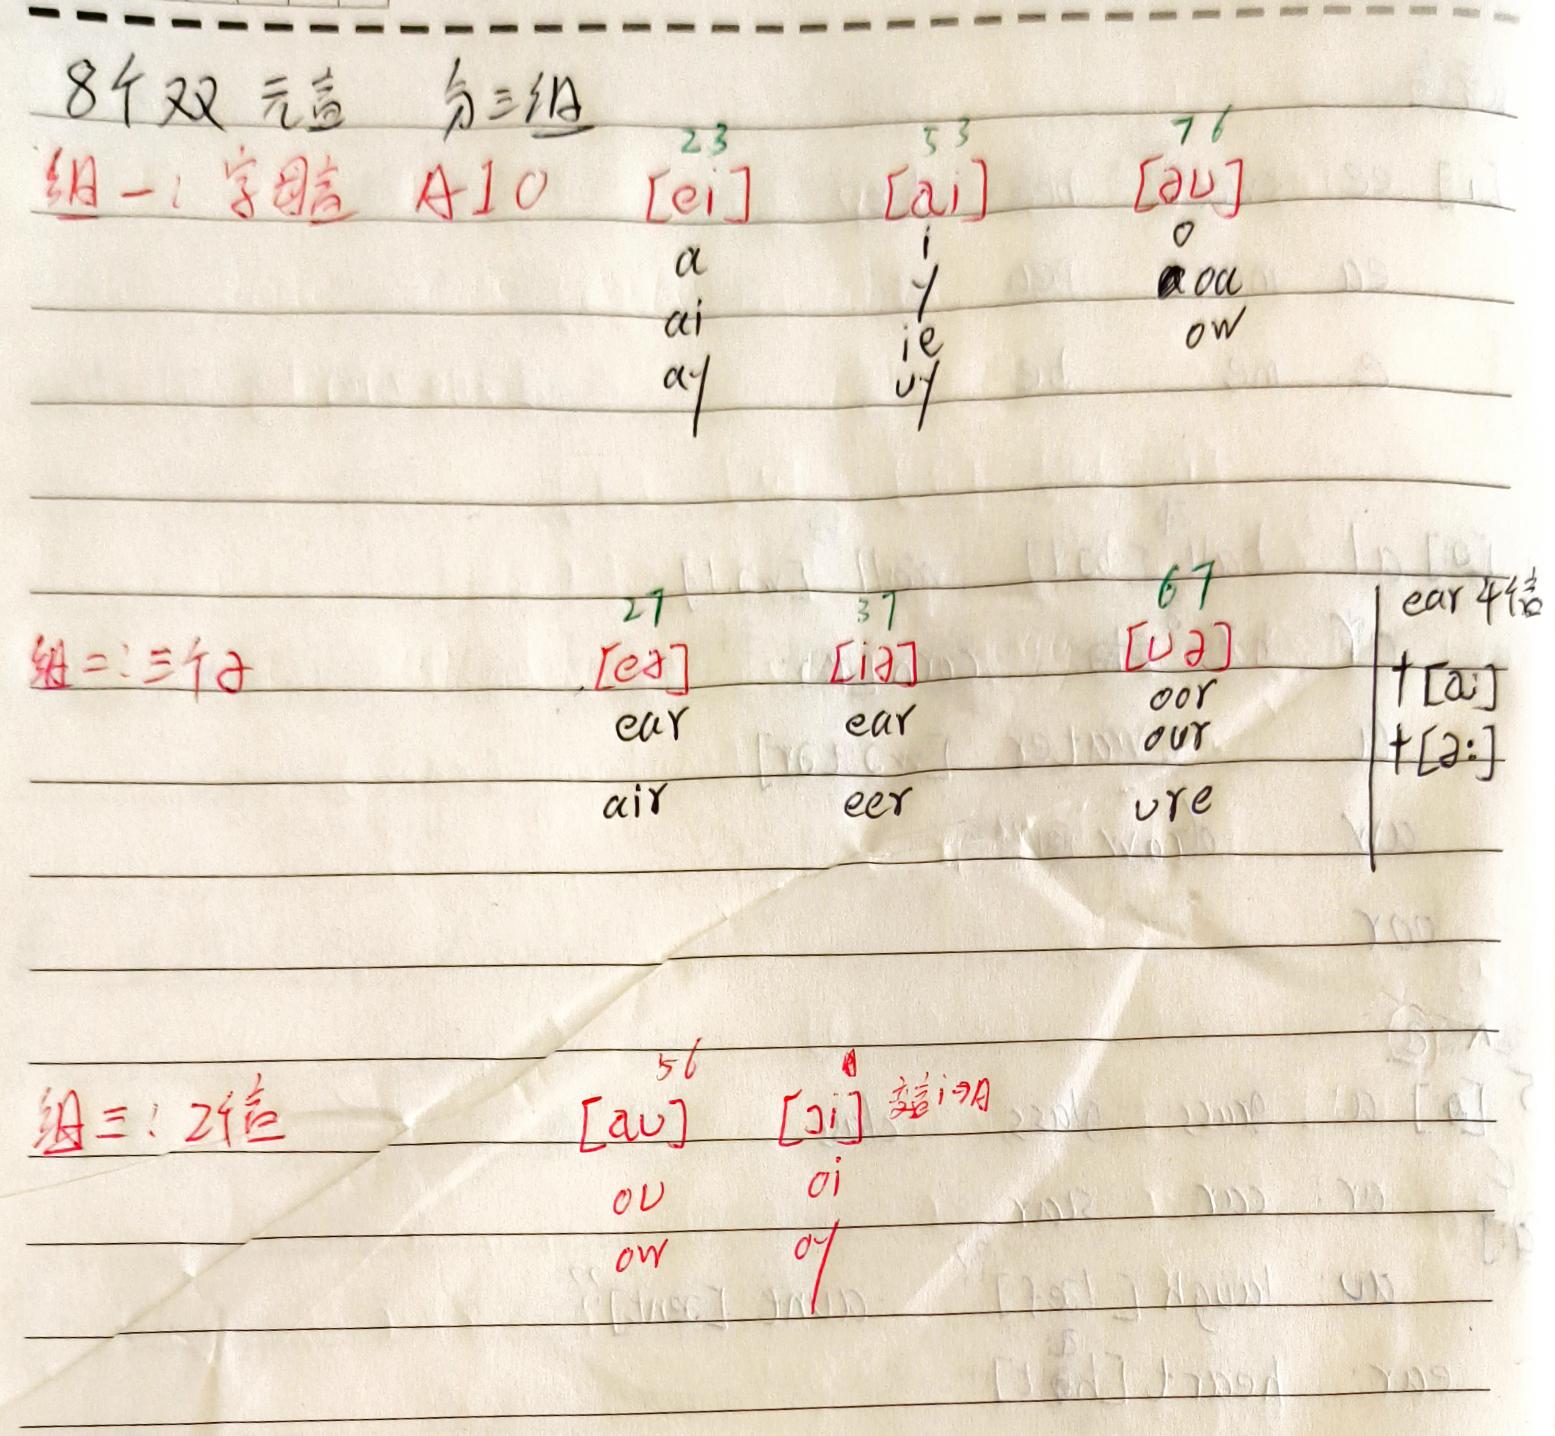 8个双元音 分三组
23 53 76
组一: 字母音 A I O [ei] [ai] [əu]
a i o
ai y oa
ay ie ow
uy
27 37 67 ear 4个音
组二: 三个ə [eə] [iə] [uə] +[a:]
ear ear oor +[ə:]
our
air eer ure
56
组三: 2个音 [au] [ɔi] 变音i→A
ou oi
ow oy